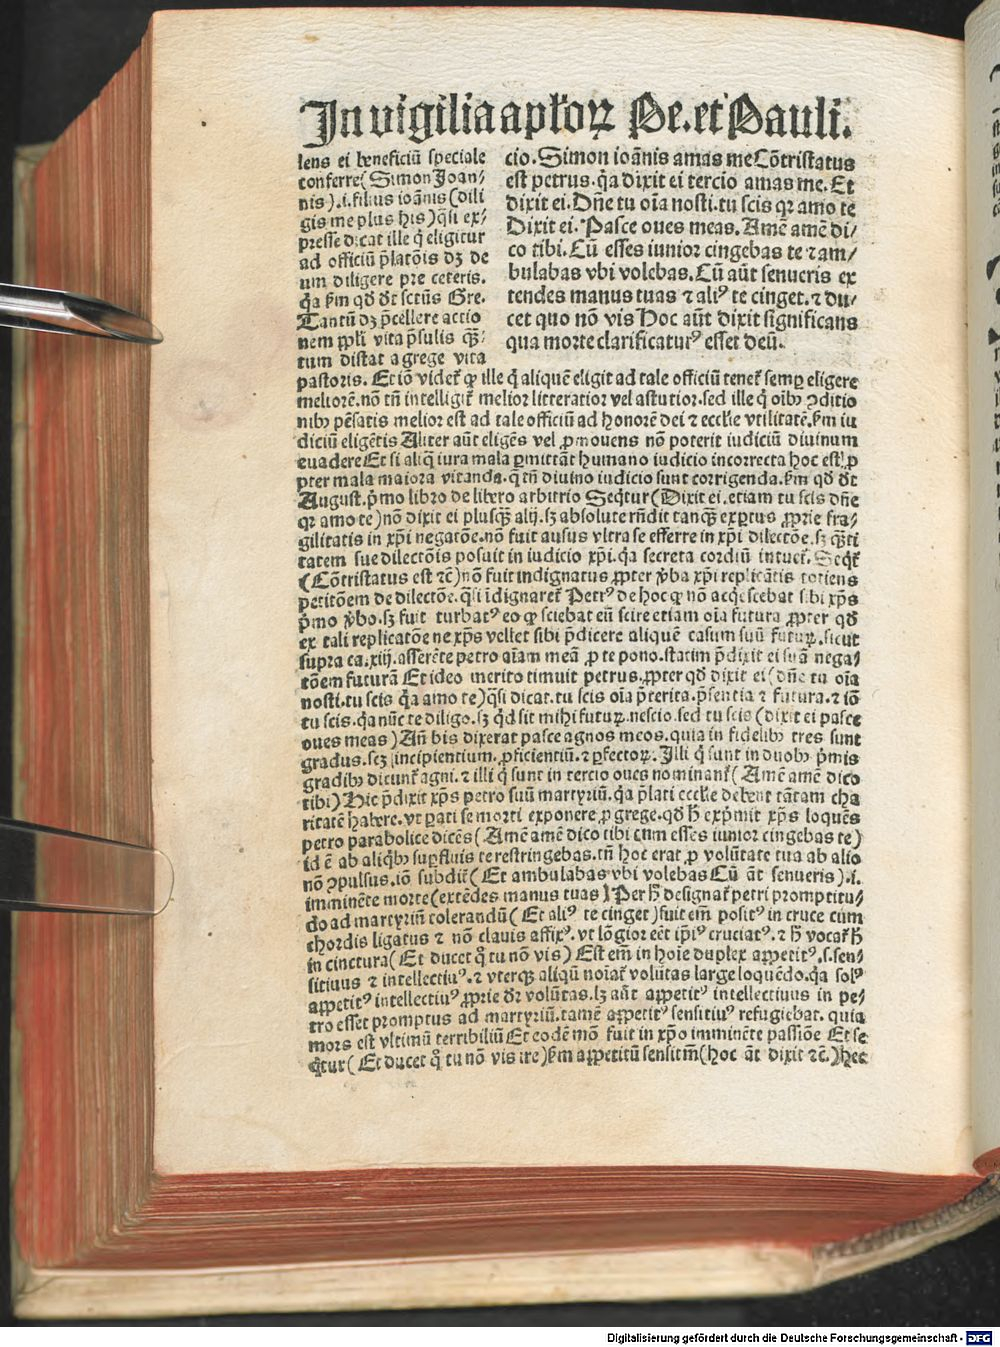 In vigilia apl'oꝝ Pe. et Pauli.
lens ei beneficiū speciale
conferre (Simon Joan⸗
nis) .i. filius ioānis (dili
gis me plus his) q̄si ex⸗
presse dicat ille q̄ eligitur
ad officiū p̄latōis dꝫ de
um diligere pre ceteris.
q̄a ẜm qd̄ dt̄ sctūs Gre.
Tantū dꝫ p̄cellere actio
nem ppl'i vita p̄sulis qꝫ̄⸗
tum distat a grege vita
cio. Simon ioānis amas me Cōtristatus
est petrus. q̄a dixit ei tercio amas me. Et
dixit ei. Dn̄e tu oīa nosti. tu scis qꝛ amo te
Dixit ei. Pasce oues meas. Amē amē di⸗
co tibi. Cū esses iunior cingebas te ⁊ am⸗
bulabas vbi volebas. Cū aūt senueris ex
tendes manus tuas ⁊ aliꝰ te cinget. ⁊ du⸗
cet quo nō vis Hoc aūt dixit significans
qua morte clarificaturꝰ esset deū.
pastoris. Et iō videt̄ ꝙ ille q̄ aliquē eligit ad tale officiū tenet̄ semꝑ eligere
meliorē. nō tn̄ intelligit̄ melior litteratior vel astutior. sed ille q̄ oībꝫ ꝯditio
nibꝫ pēsatis melior est ad tale officiū ad honorē dei ⁊ eccl'ie vtilitatē. ẜm iu
diciū eligētis Aliter aūt eligēs vel ꝓmouens nō poterit iudiciū diuinum
euadere Et si aliq̄ iura mala ꝑmittāt humano iudicio incorrecta hoc est ꝓ
pter mala maiora vitanda. q̄ tn̄ diuino iudicio sunt corrigenda. ẜm qd̄ dt̄
August. p̄mo libro de libero arbitrio Seqͥtur (Dixit ei. etiam tu scis dn̄e
qꝛ amo te) nō dixit ei plusqꝫ̄ alij. sꝫ absolute rn̄dit tanqꝫ̄ exꝑtus ꝓprie fra⸗
gilitatis in xp̄i negatōe. nō fuit ausus vltra se efferre in xp̄i dilectōe. sꝫ qꝫ̄ti
tatem sue dilectōis posuit in iudicio xp̄i. q̄a secreta cordiū intuet̄. Seqt̄
(Cōtristatus est ⁊c̄) nō fuit indignatus ꝓpter v̄ba xp̄i replicātis totiens
petitōem de dilectōe. q̄si īdignaret̄ Petrꝰ de hoc ꝙ nō acq̄escebat sibi xp̄s
p̄mo v̄bo. sꝫ fuit turbatꝰ eo ꝙ sciebat eū scire etiam oīa futura ꝓpter qd̄
ex tali replicatōe ne xp̄s vellet sibi p̄dicere aliquē casum suū futuꝝ. sicut
supra ca. xiij. asserēte petro aīam meā ꝓ te pono. statim p̄dixit ei suā nega⸗
tōem futurā Et ideo merito timuit petrus. ꝓpter qd̄ dixit ei (dn̄e tu oīa
nosti. tu scis q̄a amo te) q̄si dicat. tu scis oīa p̄terita. p̄sentia ⁊ futura. ⁊ iō
tu scis. q̄a nūc te diligo. sꝫ qͥd sit mihi futuꝝ. nescio. sed tu scis (dixit ei pasce
oues meas) Añ bis dixerat pasce agnos meos. quia in fidelibꝫ tres sunt
gradus. scꝫ incipientium. ꝓficientiū. ⁊ ꝑfectoꝝ. Illi q̄ sunt in duobꝫ p̄mis
gradibꝫ dicunt̄ agni. ⁊ illi q̄ sunt in tercio oues nominant̄ (Amē amē dico
tibi) Hic p̄dixit xp̄s petro suū martyriū. q̄a p̄lati eccl'ie debent tātam cha
ritatē habere. vt pati se morti exponere ꝓ grege. qd̄ h̄ exp̄mit xp̄s loquēs
petro parabolice dicēs (Amē amē dico tibi cum esses iunior cingebas te)
id ē ab aliqͥbꝫ suꝑfluis te restringebas. tn̄ hoc erat ꝓ volūtate tua ab alio
nō ꝯpulsus. iō subdit̄ (Et ambulabas vbi volebas Cū āt senueris) .i.
imminēte morte (extēdes manus tuas) Per h̄ designat̄ petri promptitu⸗
do ad martyriū tolerandū (Et aliꝰ te cinget) fuit em̄ positꝰ in cruce cum
chordis ligatus ⁊ nō clauis affixꝰ. vt lōgior eēt ip̄iꝰ cruciatꝰ. ⁊ h̄ vocat̄ h̄
in cinctura (Et ducet q̊ tu nō vis) Est em̄ in hoīe duplex appetitꝰ. s. sen⸗
sitiuus ⁊ intellectiuꝰ. ⁊ vterqꝫ aliqn̄ noīat̄ volūtas large loquēdo. q̄a solꝰ
appetitꝰ intellectiuꝰ ꝓprie dr̄ volūtas. lꝫ aūt appetitꝰ intellectiuus in pe⸗
tro esset promptus ad martyriū. tamē appetitꝰ sensitiuꝰ refugiebat. quia
mors est vltimū terribiliū Et eodē mō fuit in xp̄o imminēte passiōe Et se
qͥtur (Et ducet q̊ tu nō vis ire) ẜm appetitū sensitiū (hoc āt dixit ⁊c̄.) hec
Digitalisierung gefördert durch die Deutsche Forschungsgemeinschaft - DFG